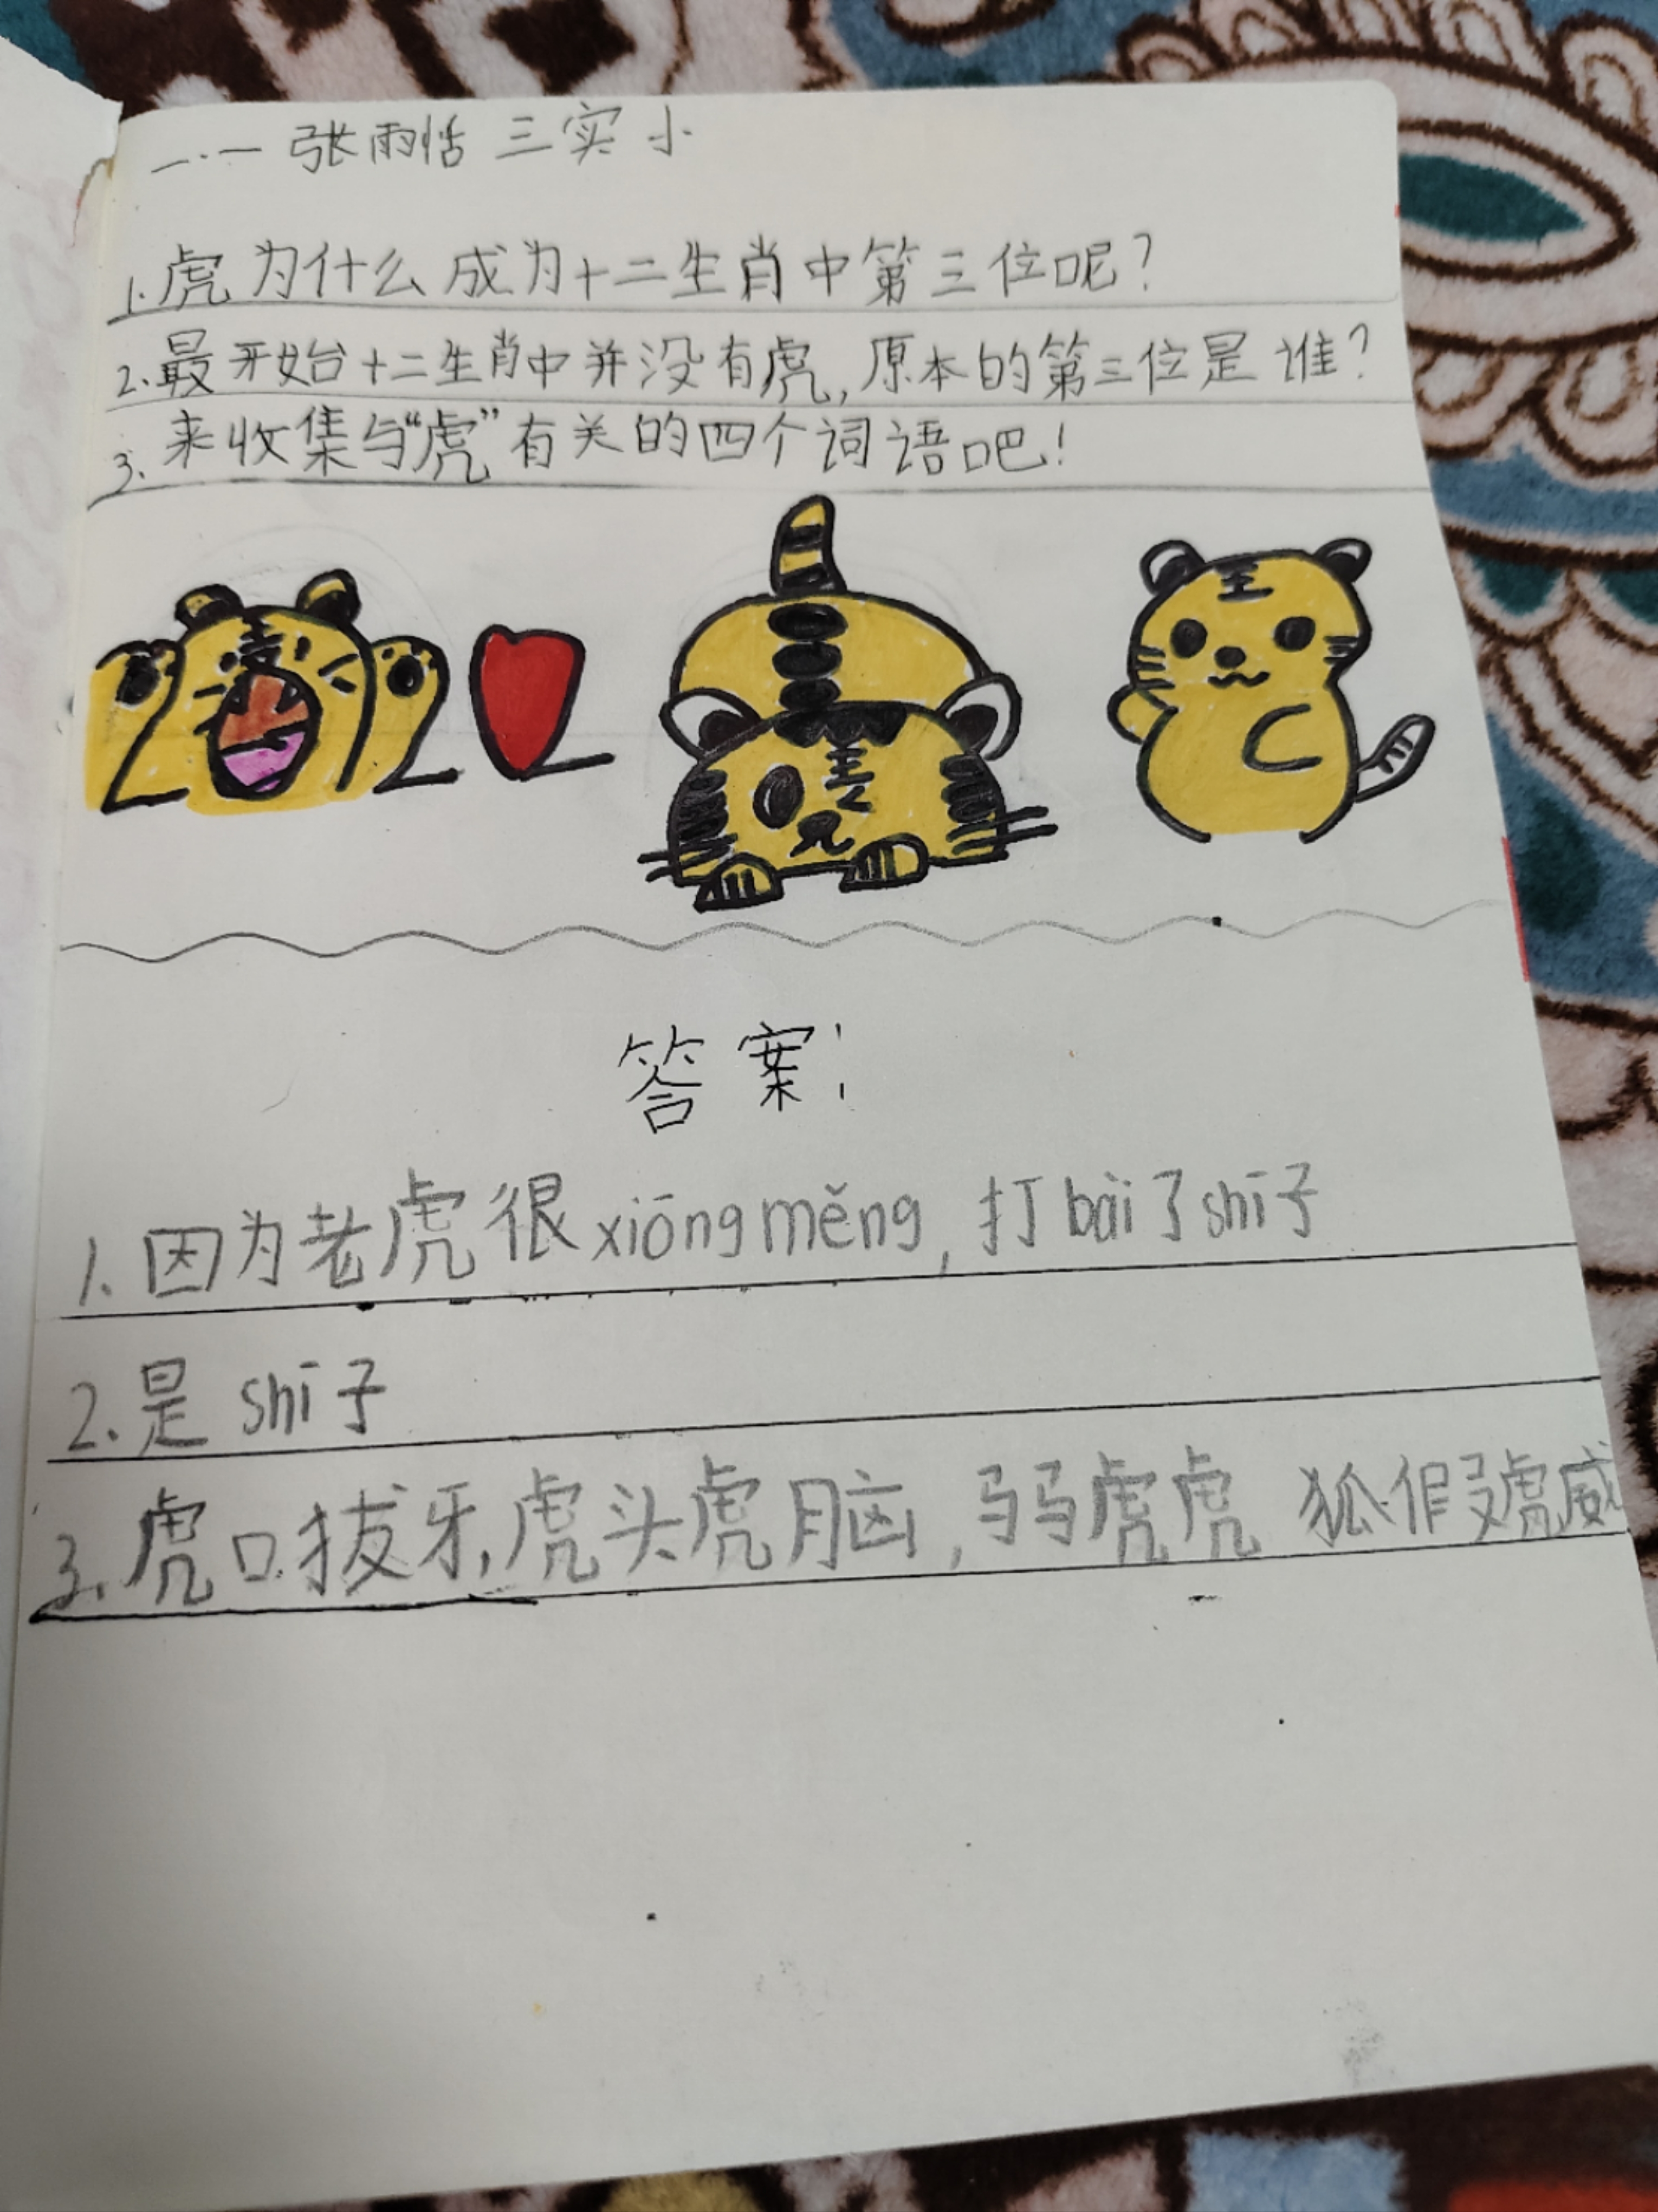 一.一 张雨恬 三实小
1.虎为什么成为十二生肖中第三位呢?
2.最开始十二生肖中并没有虎,原本的第三位是谁?
3.来收集与“虎”有关的四个词语吧!
王
答案:
1.因为老虎很xiōng měng,打bài了shī子
2.是shī子
3.虎口拔牙,虎头虎脑,马马虎虎 狐假虎威